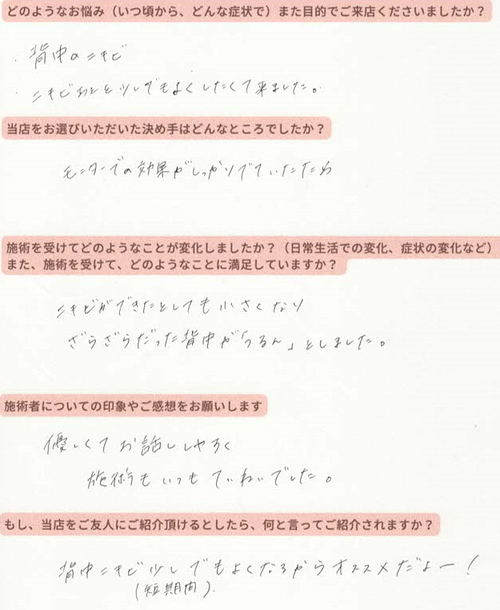 どのようなお悩み（いつ頃から、どんな症状で）また目的でご来店くださいましたか？
・背中のニキビ
・ニキビあとを少しでもよくしたくて来ました。
当店をお選びいただいた決め手はどんなところでしたか？
モニターでの効果がしっかりでていたため
施術を受けてどのようなことが変化しましたか？（日常生活での変化、症状の変化など）
また、施術を受けて、どのようなことに満足していますか？
ニキビができたとしても小さくなり
ざらざらだった背中が「うるん」としました。
施術者についての印象やご感想をお願いします
優しくてお話ししやすく
施術もいつもていねいでした。
もし、当店をご友人にご紹介頂けるとしたら、何と言ってご紹介されますか？
背中ニキビ少しでもよくなるからオススメだよー！
（短期間）